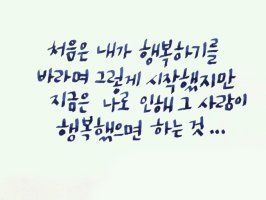 처음은 내가 행복하기를
바라며 그렇게 시작했지만
지금은 나로 인해 그 사람이
행복했으면 하는 것...